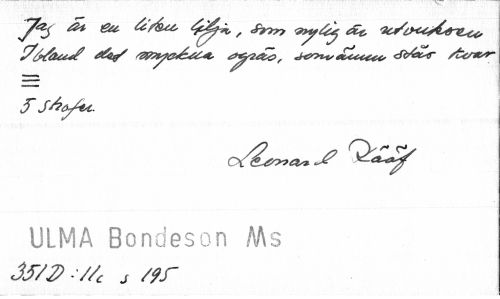 Jag är en liten lilja, som nylig är utvuxen
Ibland det myckna ogräs, som ännu står kvar
≡
5 strofer.
Leonard Rääf
ULMA Bondeson Ms
351 D : 11c s 195